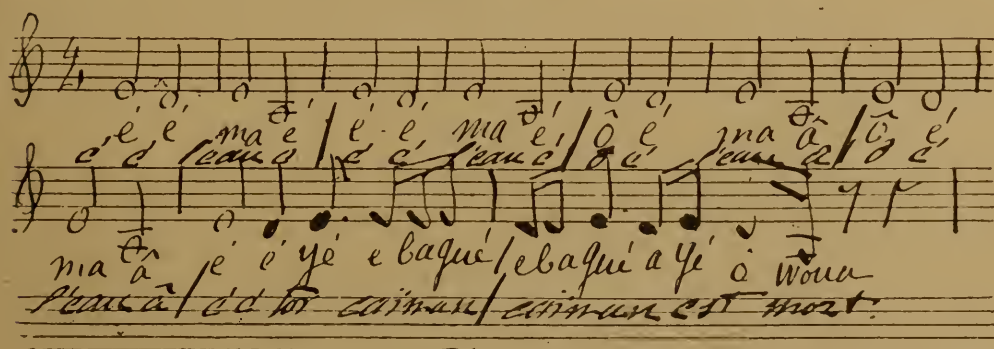 é é ma é / é é ma é / ô é ma â / ô é
é é l'eau é / é é l'eau é / ô é l'eau â / ô é
ma â / é é yé ebagué / ebagué a yé ô woua
l'eau â / é é toi caïman / caïman est mort.